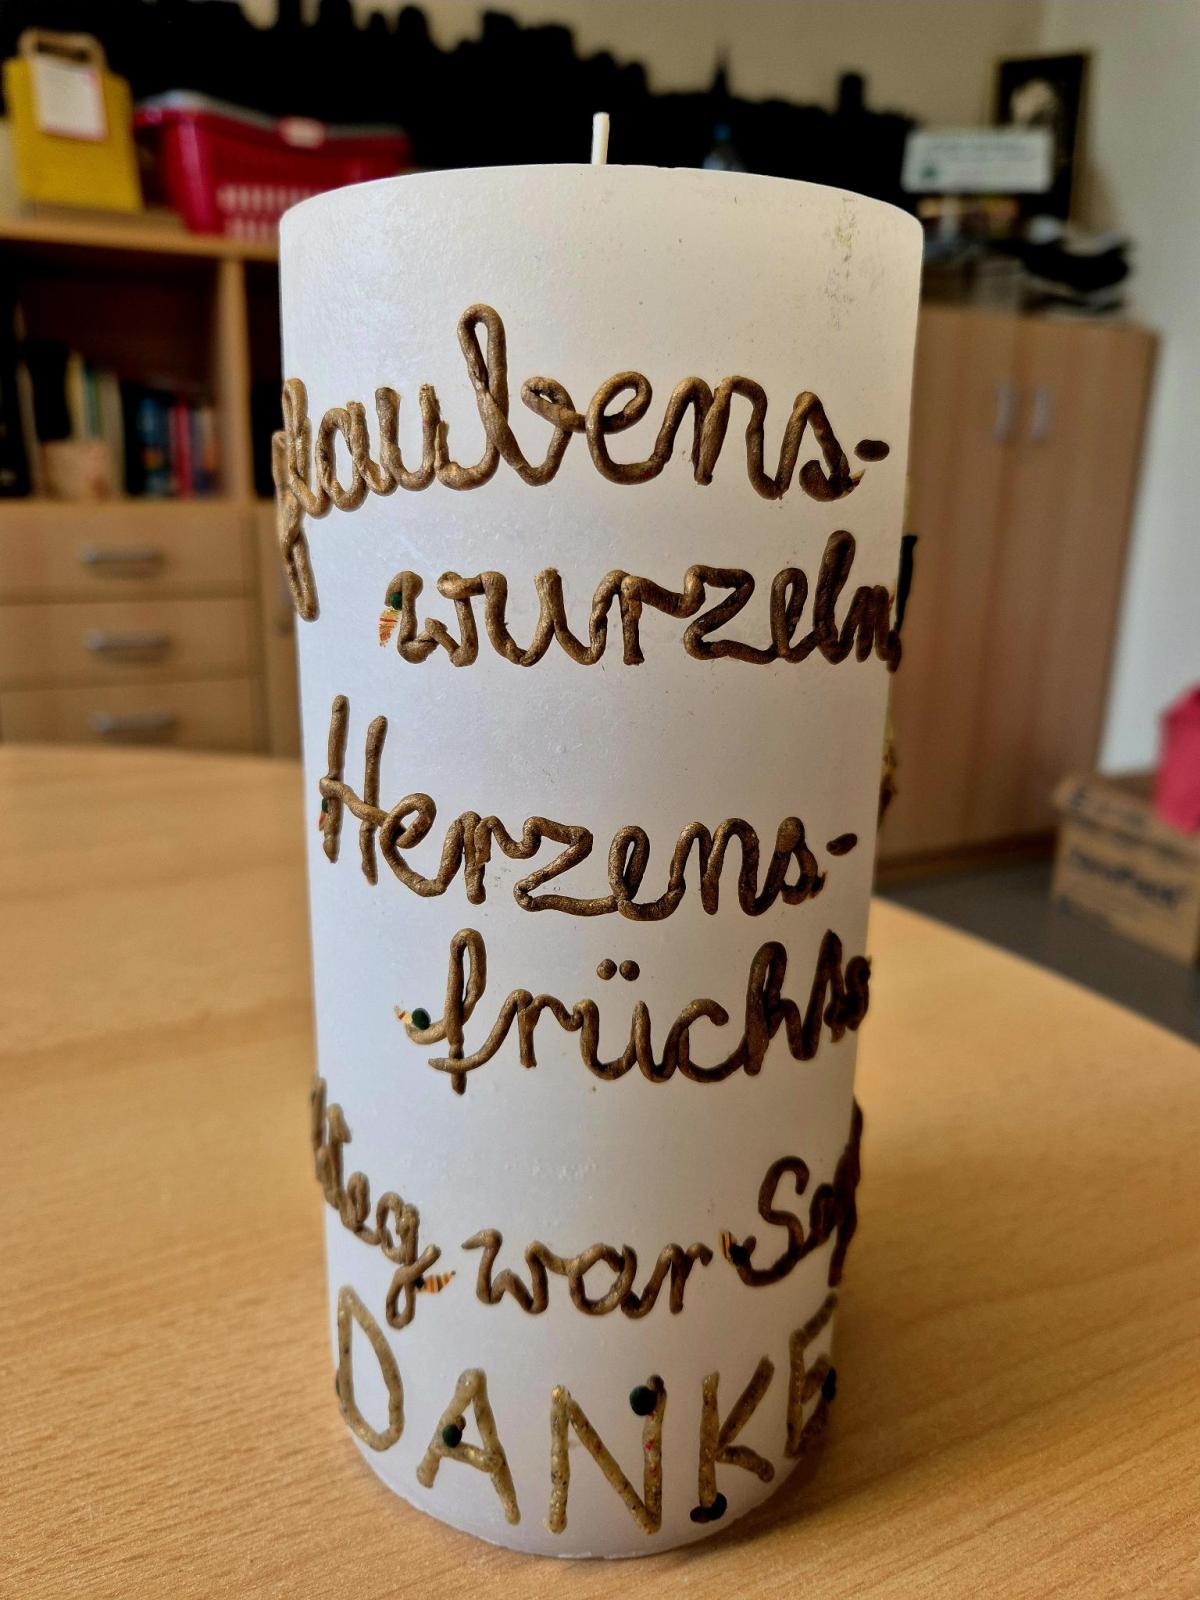 glaubens-
wurzeln!
Herzens-
früchte
Weg war
DANKE